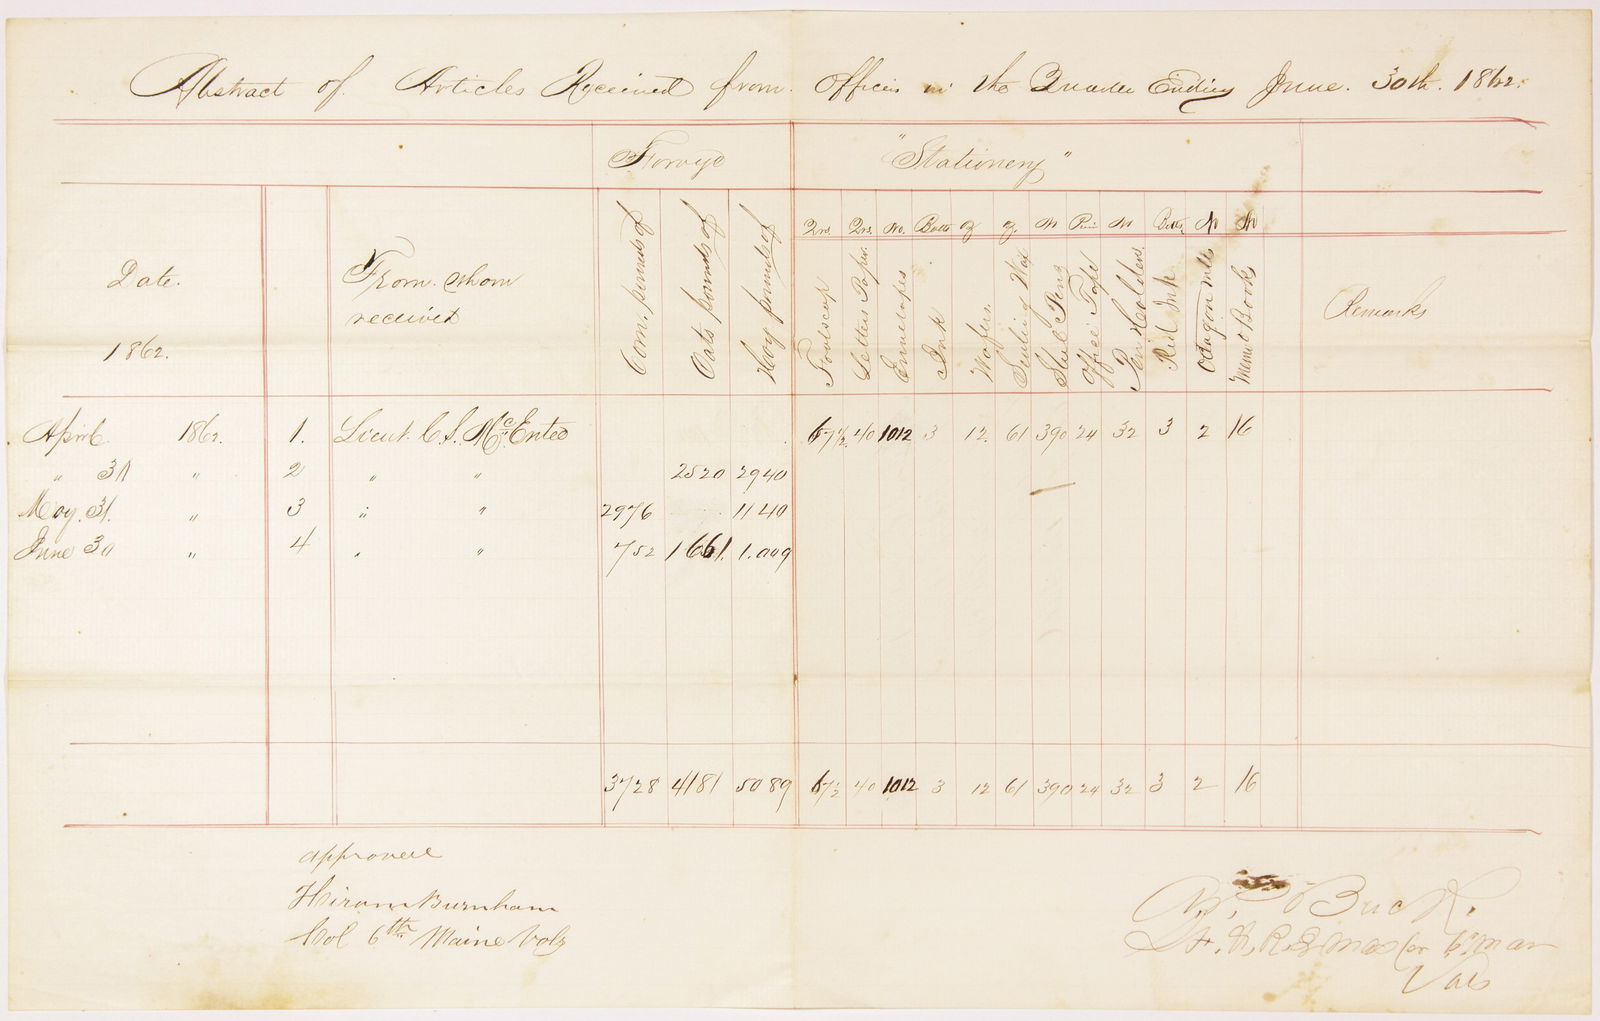 Abstract of Articles Received from Officers in the Quarter Ending June. 30th. 1862.
Forage "Stationery"
Qrs. Qrs. No. Botts oz oz. No No No Botts. No No
Date. 1862.
From whom received
Corn, pounds of
Oats pounds of
Hay pounds of
Foolscap
Letters Paper.
Envelopes
Ink
Wafers.
Sealing Wax
Steel Pens
Office Tape
Pen Holders.
Red Ink
Memo Books
Remarks
April 1862. 1. Lieut. C. S. McEntee 67½ 40 1012 3 12. 61 390 24 32 3 2 16
" 31 " 2 " " 2520 2940
May. 31. " 3 " " 2976 1140
June 30 " 4 " " 752 1661. 1.009
3728 4181 5089 67½ 40 1012 3 12 61 390 24 32 3 2 16
approved
Hiram Burnham
Col 6th Maine Vols
Buck.
Vols